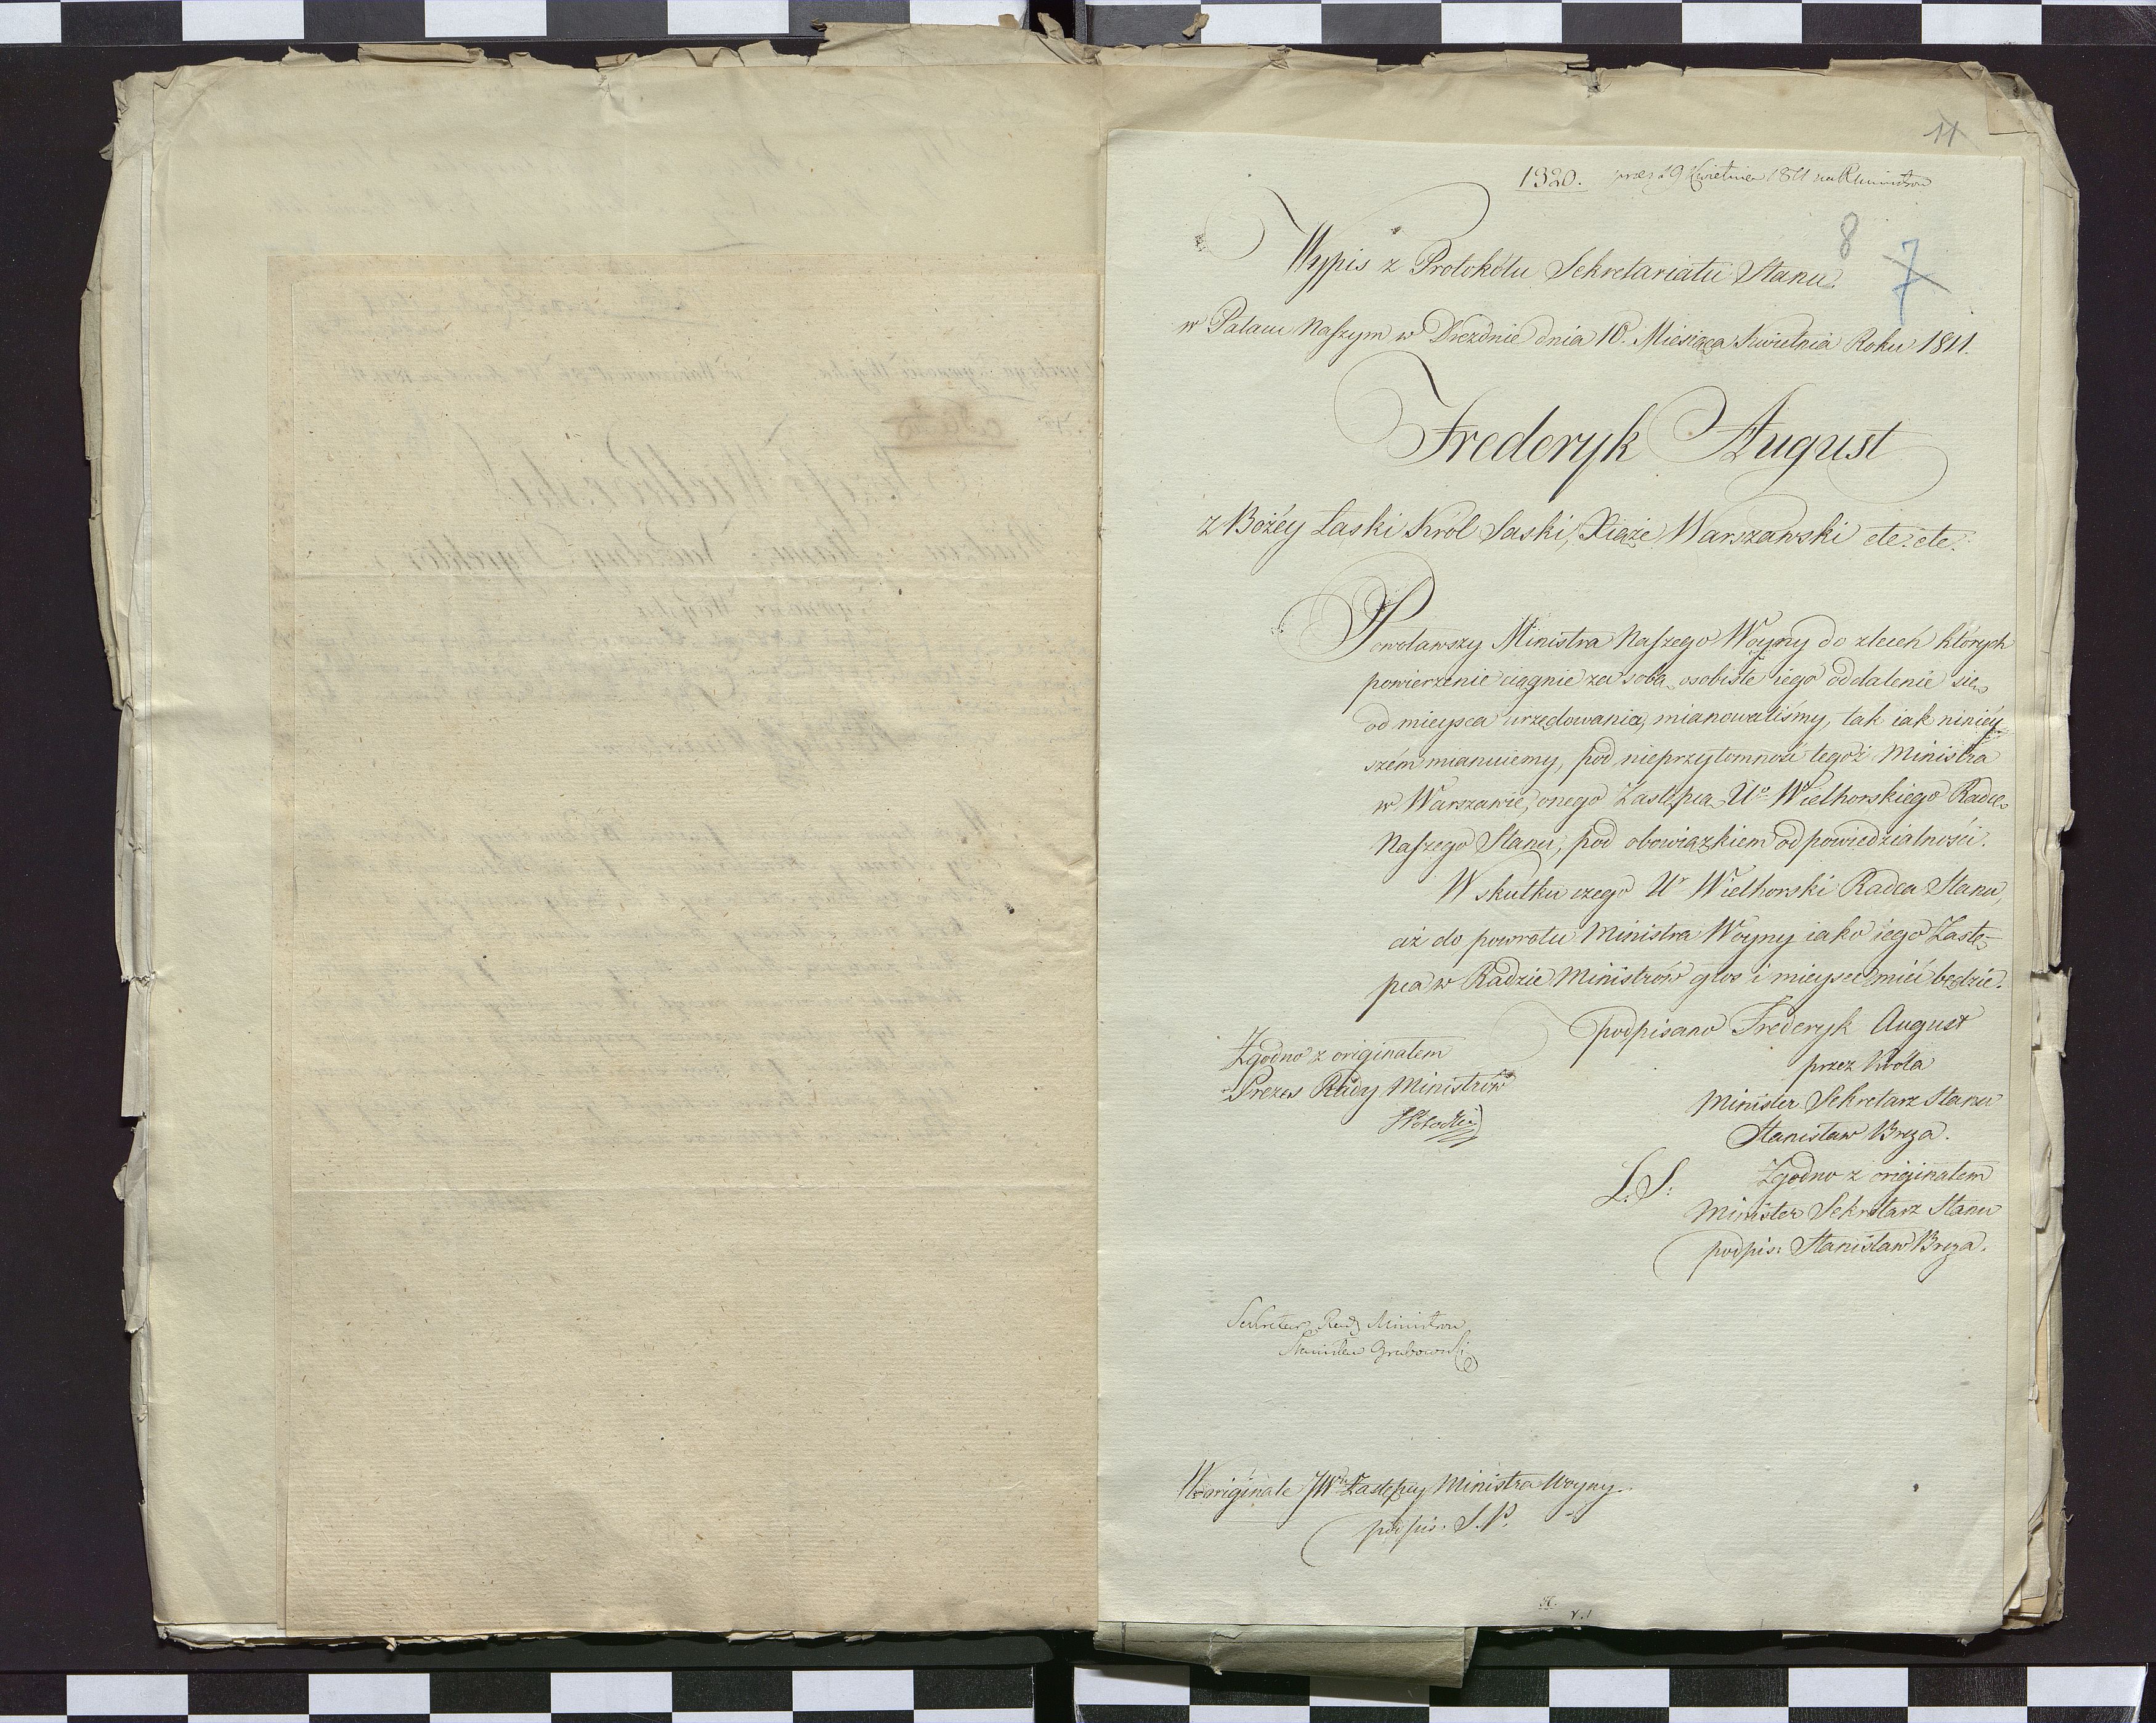 11
1320. 29 Kwietnia 1811
8
7
Wypis z Protokółu Sekretariatu Stanu.
w Pałacu Naszym w Dreznie dnia 10. Miesiąca Kwietnia Roku 1811.
Frederyk August
z Bożéy Łaski Król Saski, Xiąże Warszawski etc: etc:
Powoławszy Ministra Naszego Woyny do zleceń których
powierzenie ciągnie za sobą osobiste iego oddalenie się
od mieysca urzędowania, mianowaliśmy, tak iak niniéy-
szém mianuiemy, pod nieprzytomność tegoż Ministra
w Warszawie, onego Zastępcą Uo Wielhorskiego Radcę
Naszego Stanu, pod obowiązkiem odpowiedzialności.
W skutku czego Ur Wielhorski Radca Stanu,
aż do powrotu Ministra Woyny iako iego Zastę-
pca w Radzie Ministrów głos i mieysce mieć będzie.
podpisano Frederyk August
przez Króla
Minister Sekretarz Stanu
Stanisław Breza.
Zgodno z originałem
Prezes Rady Ministrów
L. S. Zgodno z originałem
Minister Sekretarz Stanu
podpis: Stanisław Breza.
Sekretarz Rady Ministrów
Stanisław Grabowski
W originale JW Zastępcy Ministra Woyny
podpis. S. P.